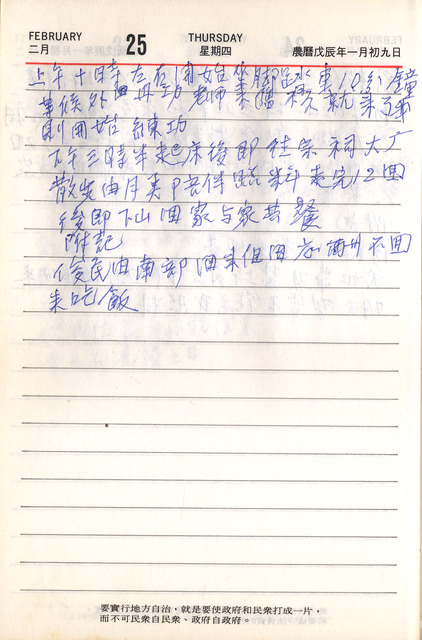 FEBRUARY
二月
25
THURSDAY
星期四
農曆戊辰年一月初九日
上午十時左右開始坐脚踏車10分鐘
等候外丹功老師來
則開始練功
下午三時半起床後即往宗祠大广
散步由月英陪伴 走完12回
後即下山回家与家共餐
附記
俊民由南部回来但因应酬不回
来吃飯
要實行地方自治，就是要使政府和民衆打成一片，
而不可民衆自民衆、政府自政府。